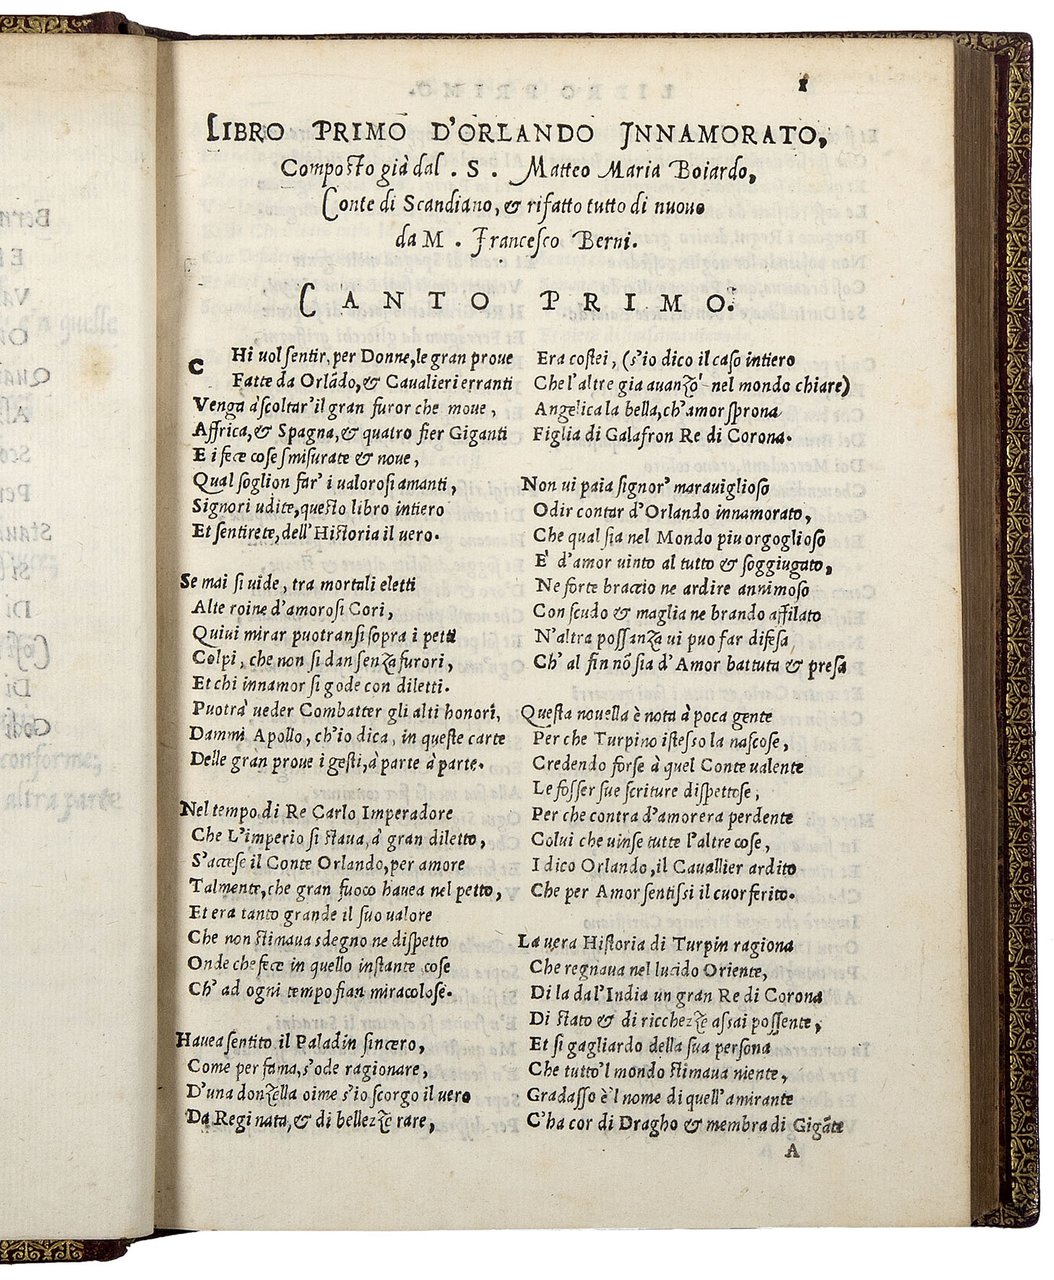 1
LIBRO PRIMO D'ORLANDO INNAMORATO,
Composto già dal . S . Matteo Maria Boiardo,
Conte di Scandiano, & rifatto tutto di nuovo
da M . Francesco Berni.
CANTO PRIMO.
CHi uol sentir, per Donne, le gran proue
Fatte da Orlãdo, & Caualieri erranti
Venga àscoltar'il gran furor che moue ,
Affrica, & Spagna, & quatro fier Giganti
E i fece cose smisurate & noue,
Qual soglion far' i ualorosi amanti,
Signori udite, questo libro intiero
Et sentirete, dell'Historia il uero.
Se mai si uide, tra mortali eletti
Alte roine d'amorosi Cori,
Quiui mirar puotransi sopra i petti
Colpi, che non si dan senza furori,
Et chi innamor si gode con diletti.
Puotrà ueder Combatter gli alti honori,
Dammi Apollo, ch'io dica, in queste carte
Delle gran proue i gesti, à parte à parte.
Nel tempo di Re Carlo Imperadore
Che L'imperio si staua, à gran diletto,
S'accese il Conte Orlando, per amore
Talmente, che gran fuoco hauea nel petto,
Et era tanto grande il suo ualore
Che non stimaua sdegno ne dispetto
Onde che fece in quello instante cose
Ch' ad ogni tempo fian miracolose.
Hauea sentito il Paladin sincero,
Come per fama, s'ode ragionare,
D'una donzella oime s'io scorgo il uero
Da Regi nata, & di bellezze rare,
Era costei, (s'io dico il caso intiero
Che l'altre gia auanzò nel mondo chiare)
Angelica la bella, ch'amor sprona
Figlia di Galafron Re di Corona.
Non ui paia signor' marauiglioso
Odir contar d'Orlando innamorato,
Che qual sia nel Mondo piu orgoglioso
E' d'amor uinto al tutto & soggiugato,
Ne forte braccio ne ardire annimoso
Con scudo & maglia ne brando affilato
N'altra possanza ui puo far difesa,
Ch' al fin nõ sia d'Amor battuta & presa
Questa nouella è nota à poca gente
Per che Turpino istesso la nascose,
Credendo forse à quel Conte ualente
Le fosser sue scriture dispettose,
Per che contra d'amor era perdente
Colui che uinse tutte l'altre cose,
I dico Orlando, il Cauallier ardito
Che per Amor sentissi il cuor ferito.
La uera Historia di Turpin ragiona
Che regnaua nel lucido Oriente,
Di la dal'India un gran Re di Corona
Di stato & di ricchezze assai possente,
Et si gagliardo della sua persona
Che tutto'l mondo stimaua niente,
Gradasso è 'l nome di quell'amirante
C'ha cor di Dragho & membra di Gigãte
A